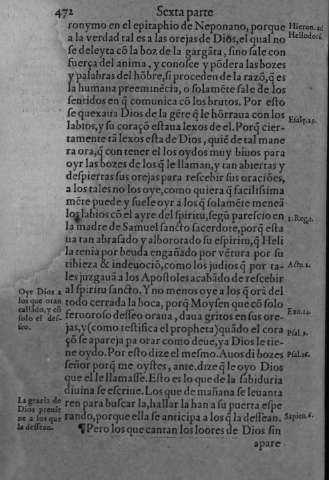 472 Sexta parte
ronymo en el epitaphio de Neponano, porque
a la verdad tal es a las orejas de Dios, el qual no
se deleyta cõ la boz de la gargãta, sino sale con
fuerça del anima, y conosce y põdera las bozes
y palabras del hõbre, si proceden de la razõ, q̃ es
la humana preeminẽcia, o solamẽte sale de los
sentidos en q̃ comunica cõ los brutos. Por esto
se quexaua Dios de la gẽte q̃ le hõrraua con los
labios, y su coraçõ estaua lexos de el. Porq̃ cier-
tamente tã lexos esta de Dios, quiẽ de tal mane
ra ora, q̃ con tener el los oydos muy biuos para
oyr las bozes de los q̃ le llaman, y tan abiertas y
despiertas sus orejas para rescebir sus oraciões,
a los tales no los oye, como quiera q̃ facilissima
mẽte puede y suele oyr a los q̃ solamẽte meneã
los labios cõ el ayre del spiritu, segũ parescio en
la madre de Samuel sancto sacerdote, porq̃ esta
ua tan abrasado y alborotado su espiritu, q̃ Heli
la tenia por beuda engañado por vẽtura por su
tibieza & indeuociõ, como los judios q̃ por ta-
les juzgauã a los Apostoles acabãdo de rescebir
al spiritu sancto. Y no menos oye a los q̃ orã del
todo cerrada la boca, porq̃ Moysen que cõ solo
feruoroso desseo oraua, daua gritos en sus ore-
jas, y (como testifica el propheta) quãdo el cora
çõ se apareja pa orar como deue, ya Dios le tie-
ne oydo. Por esto dize el mesmo. A uos di bozes
señor porq̃ me oystes, ante.dize q̃ le oyo Dios
que el le llamasse. Esto es lo que de la sabiduria
diuina se escriue. Los que de mañana se leuanta
ren para buscar la, hallar la han a su puerta espe
rando, porque ella se anticipa a los q̃ la dessean.
¶ Pero los que cantan los loores de Dios sin
apare
Hieron. ad
Heliodorũ.
Esaie.29.
1.Reg.1.
Acto.2.
Exo.14.
Psal.9.
Psal.16.
Sapien.6.
Oye Dios a
los que oran
callãdo, y cõ
solo el des-
seo.
La gracia de
Dios preuie
ne a los que
la dessean.